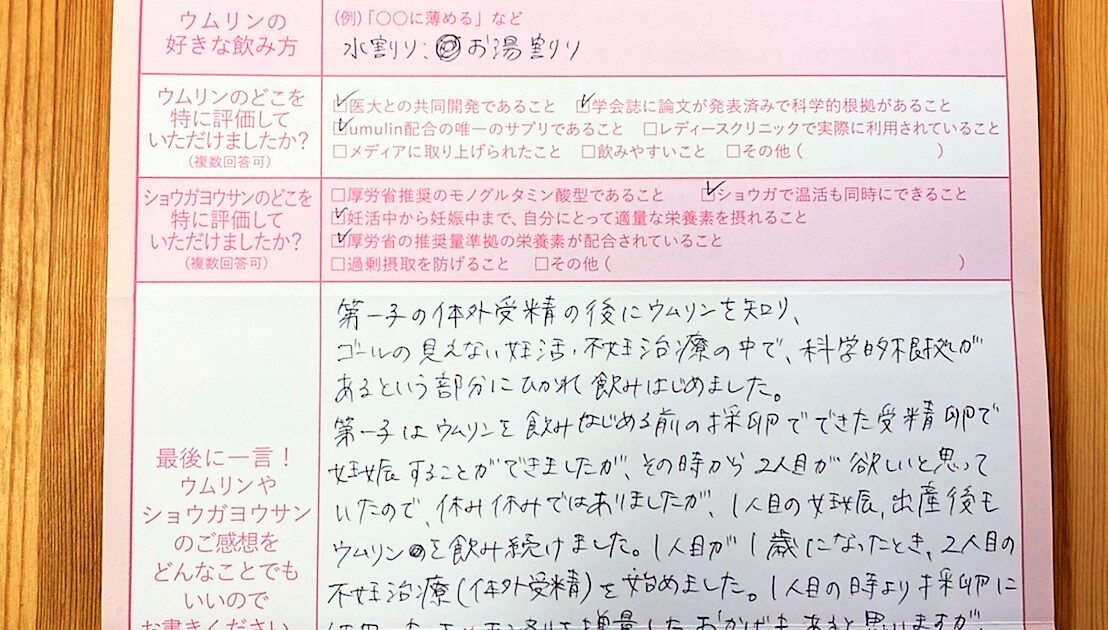 ウムリンの
好きな飲み方
(例)「〇〇に薄める」など
水割り、お湯割り
ウムリンのどこを
特に評価して
いただけましたか?
(複数回答可)
☑医大との共同開発であること ☑学会誌に論文が発表済みで科学的根拠があること
☑umulin配合の唯一のサプリであること □レディースクリニックで実際に利用されていること
□メディアに取り上げられたこと □飲みやすいこと □その他( )
ショウガヨウサンのどこを
特に評価して
いただけましたか?
(複数回答可)
□厚労省推奨のモノグルタミン酸型であること ☑ショウガで温活も同時にできること
☑妊活中から妊娠中まで、自分にとって適量な栄養素を摂れること
☑厚労省の推奨量準拠の栄養素が配合されていること
□過剰摂取を防げること □その他( )
最後に一言!
ウムリンや
ショウガヨウサン
のご感想を
どんなことでも
いいので
お書きください
第一子の体外受精の後にウムリンを知り、
ゴールの見えない妊活・不妊治療の中で、科学的根拠が
あるという部分にひかれ飲みはじめました。
第一子はウムリンを飲みはじめる前の採卵でできた受精卵で
妊娠することができましたが、その時から2人目が欲しいと思って
いたので、休み休みではありましたが、1人目の妊娠、出産後も
ウムリンを飲み続けました。1人目が1歳になったとき、2人目の
不妊治療(体外受精)を始めました。1人目の時より採卵に
を増量したおかげもあると思いますが、